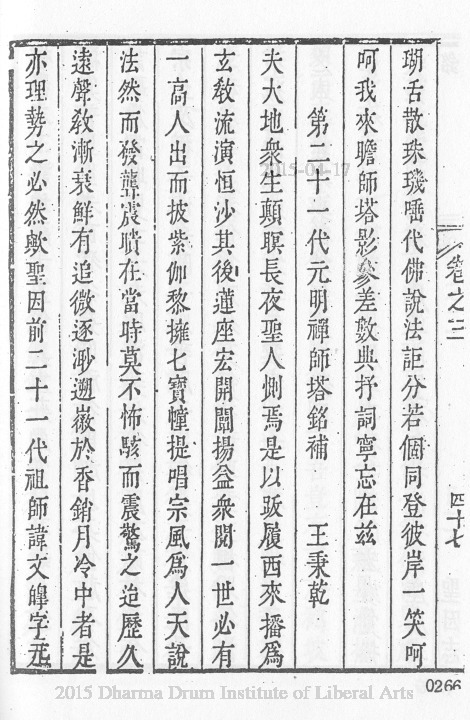 卷之三
四十七
瑚舌散珠璣代佛說法詎分若個同登彼岸一笑呵
呵我來瞻師塔影參差數典抒詞寧忘在玆
第二十一代元明禪師塔銘補 王秉乾
夫大地衆生顛瞑長夜聖人惻焉是以跋履西來播爲
玄敎流演恒沙其後蓮座宏開闡揚益衆閱一世必有
一高人出而披紫伽黎擁七寶幢提唱宗風爲人天說
法然而發聾震聵在當時莫不怖駭而震驚之迨歷久
遠聲敎漸衰鮮有追微逐渺遡徽於香銷月冷中者是
亦理勢之必然歟聖因前二十一代祖師諱文皡字元
2015-04-17
0266
2015 Dharma Drum Institute of Liberal Arts